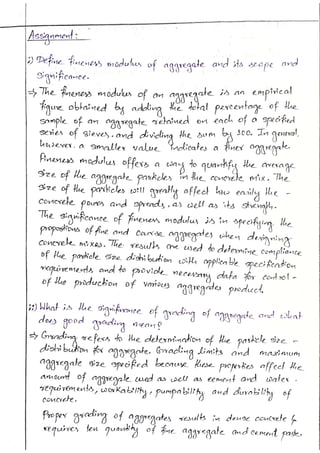 Assignment:
i) Define fineness modulus of aggregate and its scope and
Significance.
⇒ The fineness modulus of an aggregate is an empirical
figure obtained by adding the total percentage of the
sample of an aggregate retained on each of a specified
series of sieves, and dividing the sum by 100. In general,
however, a smaller value indicates a finer aggregate.
Fineness modulus offers a way to quantify the average
size of the aggregate particles in the concrete mix. The
size of the particles will greatly affect how easily the -
concrete pours and spreads, as well as its strength.
The significance of fineness modulus is in specifying the
proportions of fine and coarse aggregates when designing
concrete mixes. The results are used to determine compliance
of the particle size distribution with applicable specification
requirements and to provide necessary data for control -
of the production of various aggregates product.
ii) What is the significance of grading of aggregate and what
does good grading mean?
⇒ Grading refers to the determination of the particle size -
distribution for aggregate. Grading limits and maximum
aggregate size specified because these properties affect the
amount of aggregate used as well as cement and water -
requirements, workability, pumpability and durability of
concrete.
Proper grading of aggregates results in dense concrete &
requires less quantity of fine aggregate and cement paste.